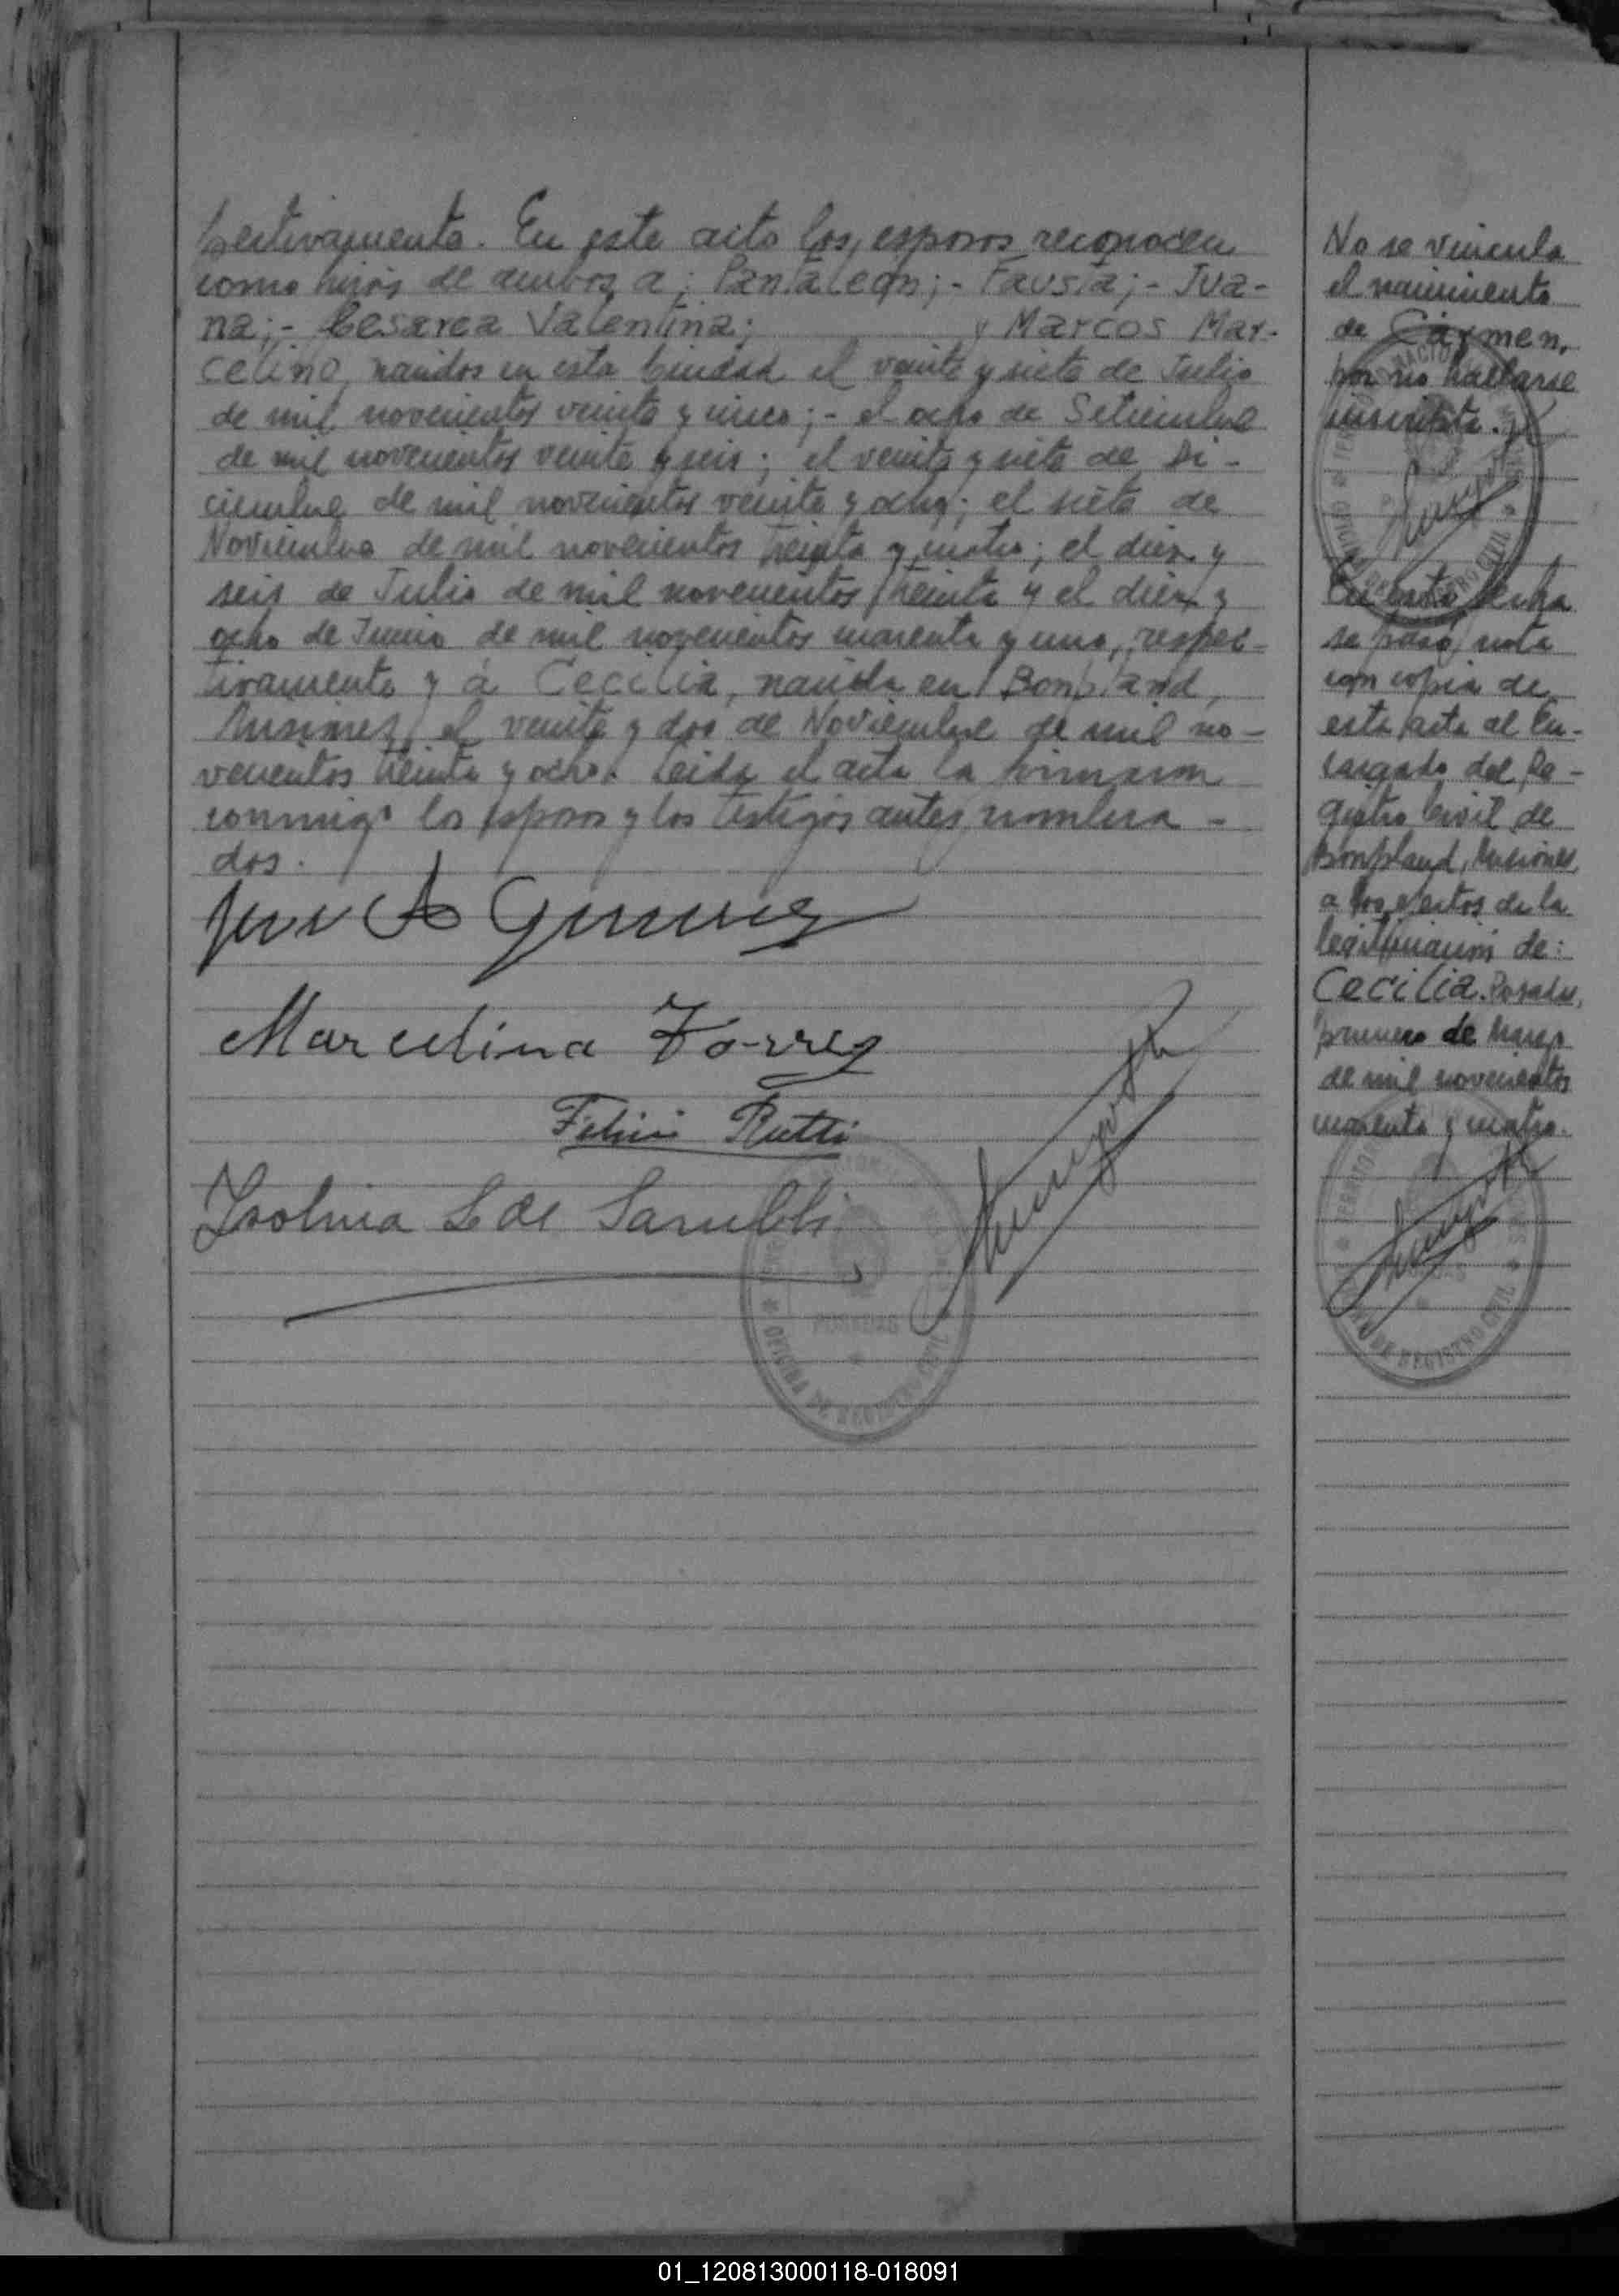 pectivamente. En este acto los esposos reconocen
como hijos de ambos a: Pantaleon;- Fausta;- Jua-
na;- Cesarea Valentina; y Marcos Mar-
celino, nacidos en esta Ciudad el veinte y siete de Julio
de mil novecientos veinte y cinco;- el ocho de Setiembre
de mil novecientos veinte y seis; el veinte y siete de Di-
ciembre de mil novecientos veinte y ocho; el siete de
Noviembre de mil novecientos treinta y cuatro; el diez y
seis de Julio de mil novecientos treinta y el diez y
ocho de Junio de mil novecientos cuarenta y uno, respec-
tivamente y á Cecilia, nacida en Bonpland,
Misiones, el veinte y dos de Noviembre de mil no-
vecientos treinta y ocho. Leida el acta la firmaron
conmigo los esposos y los testigos antes nombra-
dos.
A Gimenez
Marcelina Torres
Rutti
L de
TERRITORIO NACIONAL DE MISIONES
POSADAS
OFICINA DE REGISTRO CIVIL
No se vincula
el nacimiento
de Cármen,
por no hallarse
inscripta.
En esta fecha
se pasó nota
con copia de
esta acta al En-
cargado del Re-
gistro Civil de
Bonpland, Misiones,
a los efectos de la
legitimación de:
Cecilia. Posadas,
primero de Marzo
de mil novecientos
cuarenta y cuatro.
OFICINA DE REGISTRO CIVIL
01_120813000118-018091